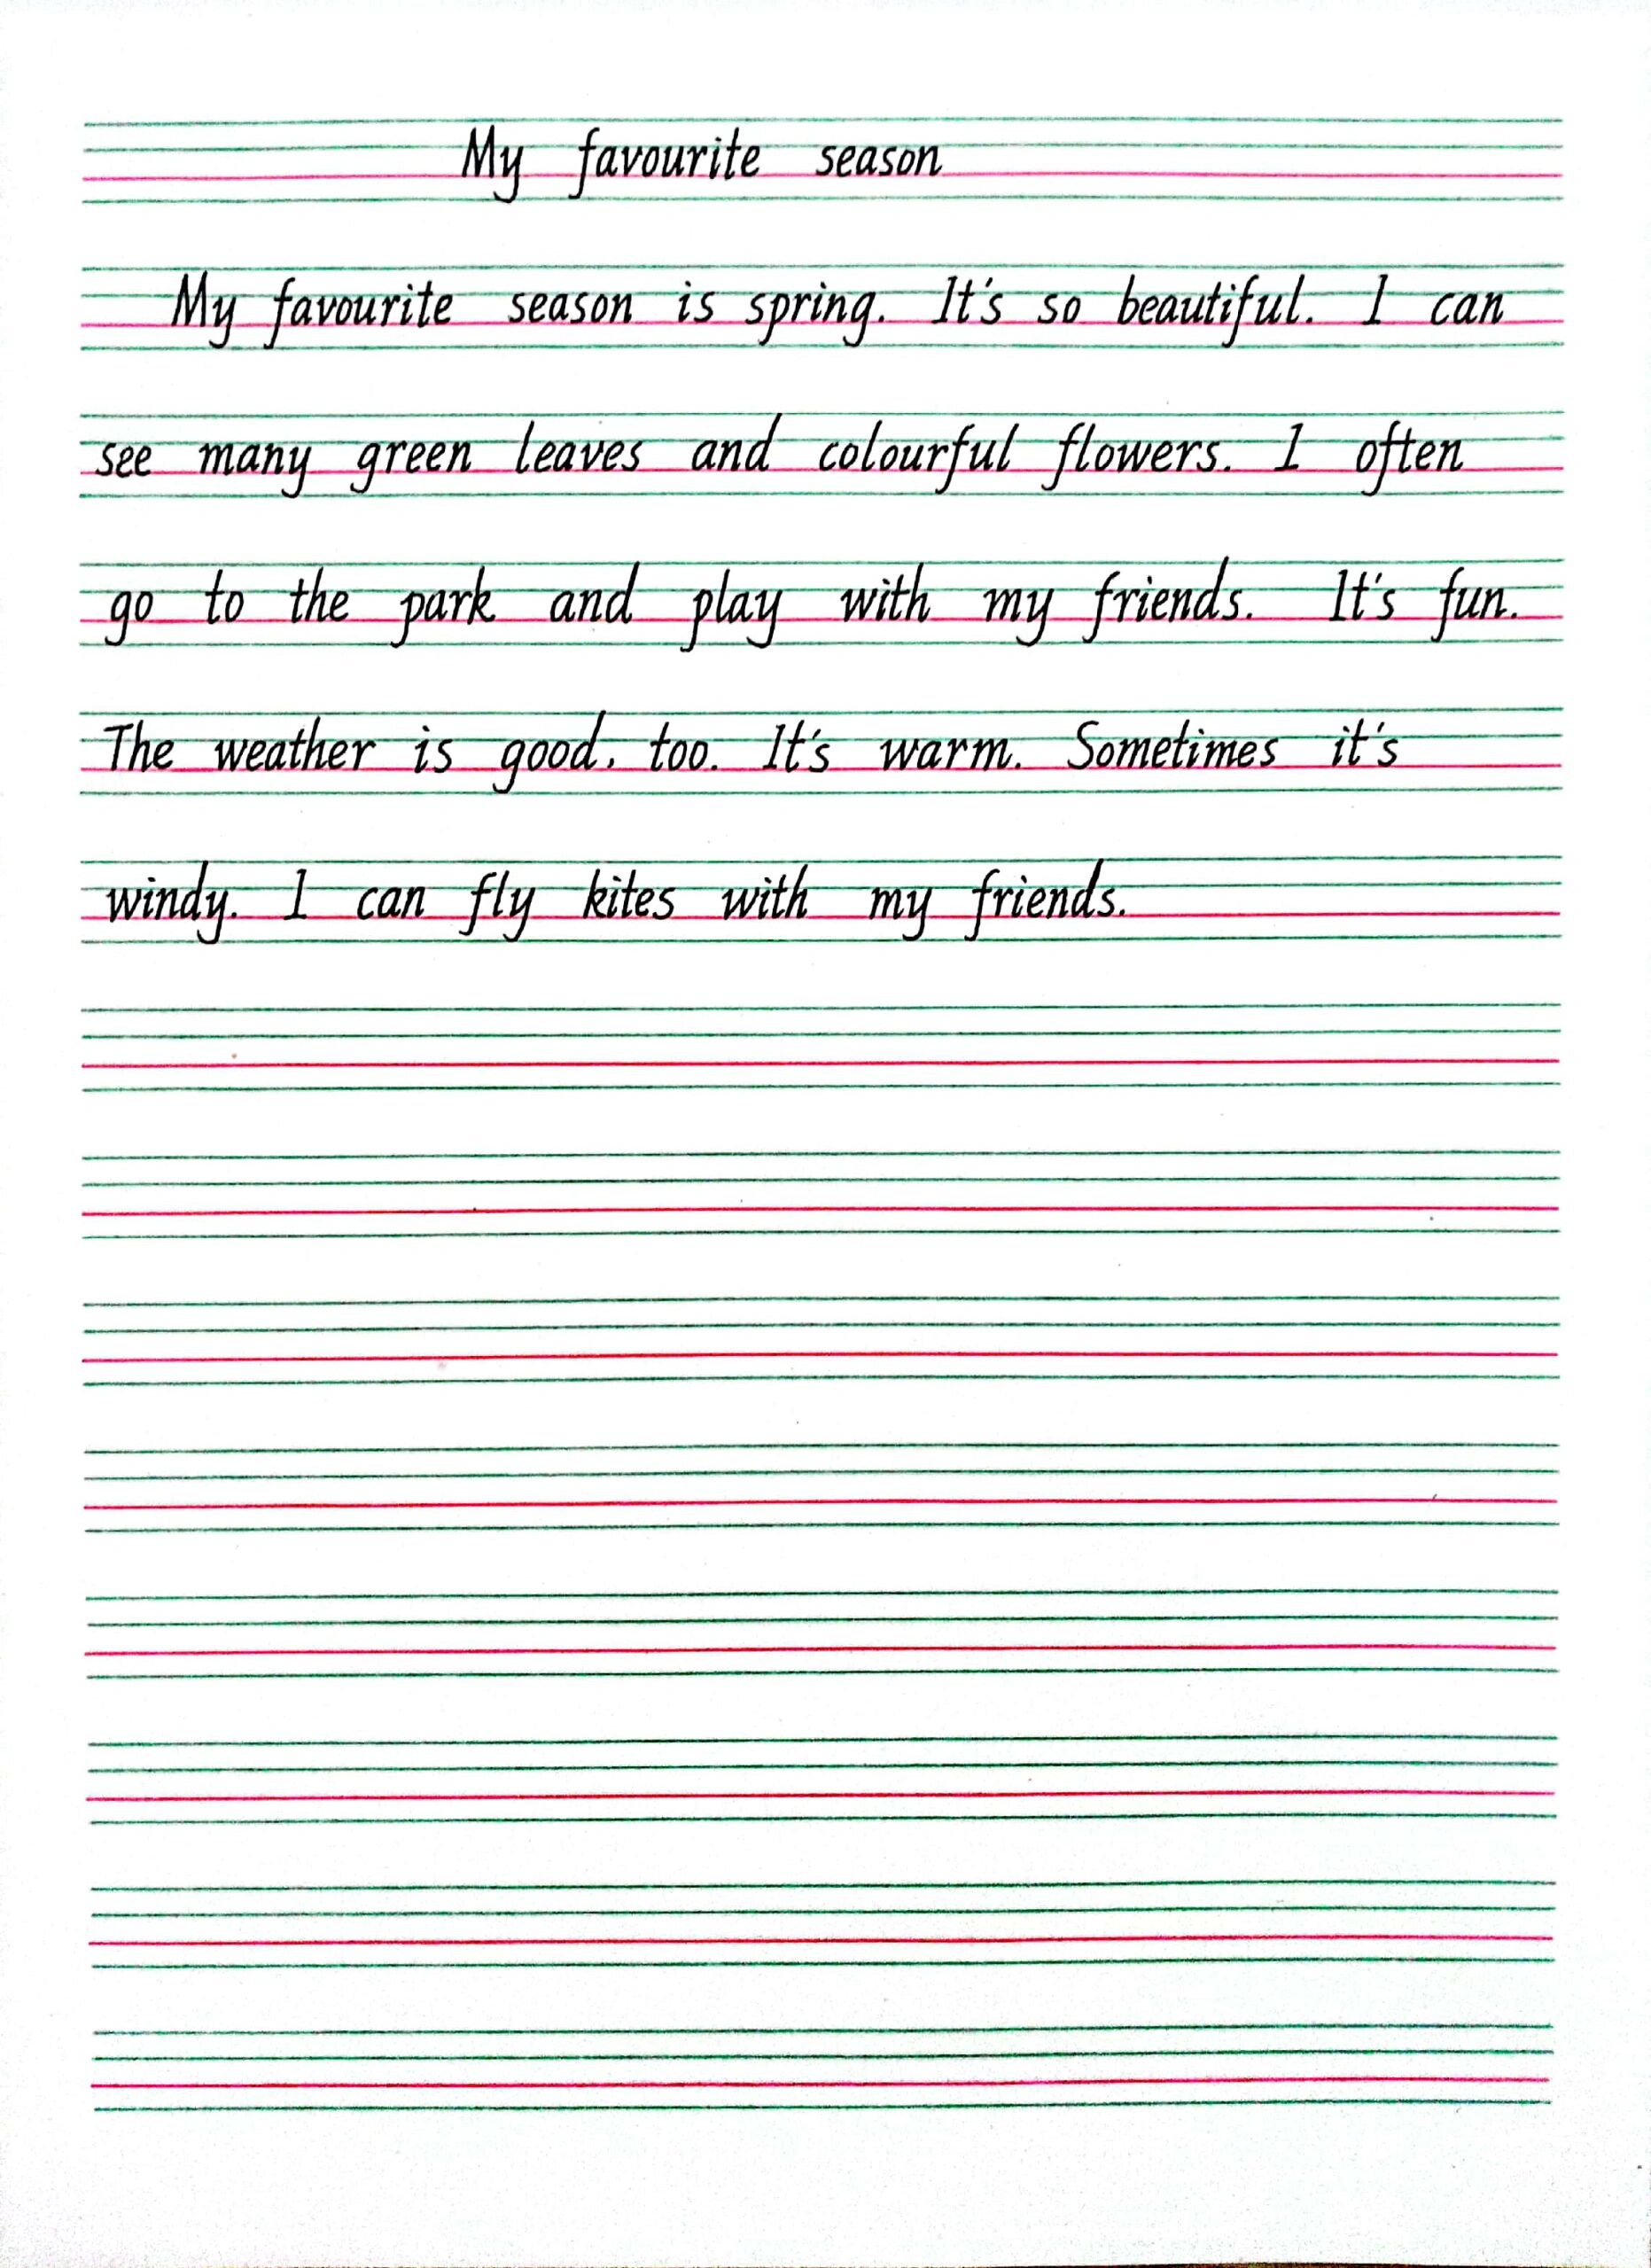 My favourite season
My favourite season is spring. It's so beautiful. I can
see many green leaves and colourful flowers. I often
go to the park and play with my friends. It's fun.
The weather is good, too. It's warm. Sometimes it's
windy. I can fly kites with my friends.